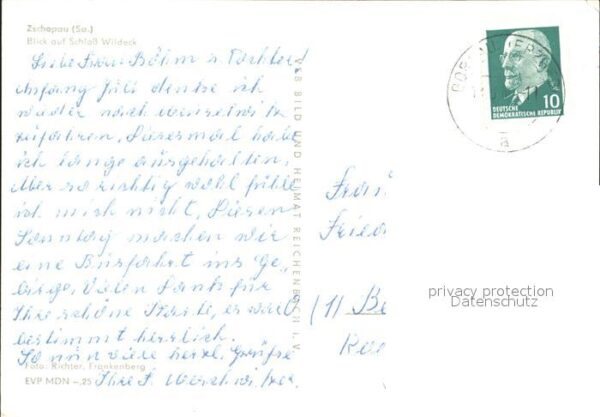 Zschopau (Sa.)
Blick auf Schloß Wildeck
Liebe Frau Böhm u. Tochter!
Anfang Juli denke ich
wieder nach
zufahren. Dieses mal habe
ich lange ausgehalten.
Aber so richtig wohl fühle
ich mich nicht. Diesen
Sonntag machen wir
eine Busfahrt ins Ge-
birge. Vielen Dank für
Ihre schöne Karte, es war
bestimmt herrlich.
So nun viele herzl. Grüße
Ihre
Foto: Richter, Frankenberg
EVP MDN -,25
VEB BILD UND HEIMAT REICHENBACH i. V.
10
DEUTSCHE
DEMOKRATISCHE REPUBLIK
a
Frau
Fried
(1) Be
privacy protection
Datenschutz